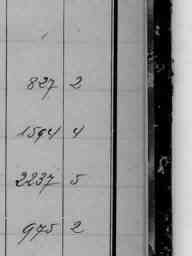 827 2
1594 4
2237 5
975 2